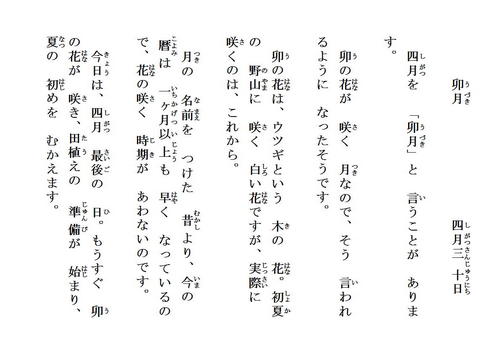 卯月　四月三十日
四月を 「卯月」と 言うことが ありま
す。
卯の花が 咲く 月なので、そう 言われ
るように なったそうです。
卯の花は、ウツギという 木の 花。初夏
の 野山に 咲く 白い花ですが、実際に
咲くのは、これから。
月の 名前を つけた 昔より、今の
暦は 一ヶ月以上も 早く なっているの
で、花の咲く 時期が あわないのです。
今日は、四月 最後の 日。もうすぐ 卯
の花が 咲き、田植えの 準備が 始まり、
夏の 初めを むかえます。